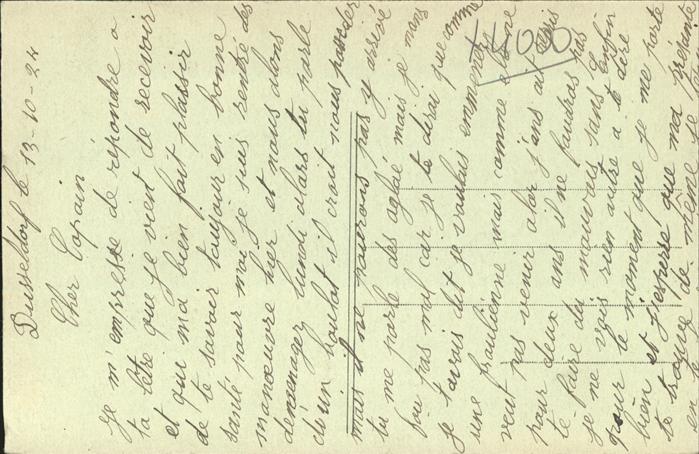 Dusseldorf le 13-10-24
Cher Copain
Je m'empresse de répondre a
ta lêtre que je vient de recevoir
et qui ma bien fait plaisir
de te savoir toujour en bonne
santé pour moi je suis rentré des
manœuvre hier et nous alons
demenager lundi alors tu parle
d'un boulot il croit nous posseder
mais il ne pourrons pas y arrivé
tu me parle des aglaé mais je mans
fou pas mal car je te dirai que comme
je t'avais dit je voulais emmener
une frauliene mais comme elle ne
veut pas venir alor j'ans ait pris
pour deux ans il ne faudras pas
te faire du mauvais sans Enfin
je ne vois rien autre a te dire
pour le moment que je me porte
bien et j'esperse que ma présente
te trouve de même je
+1000